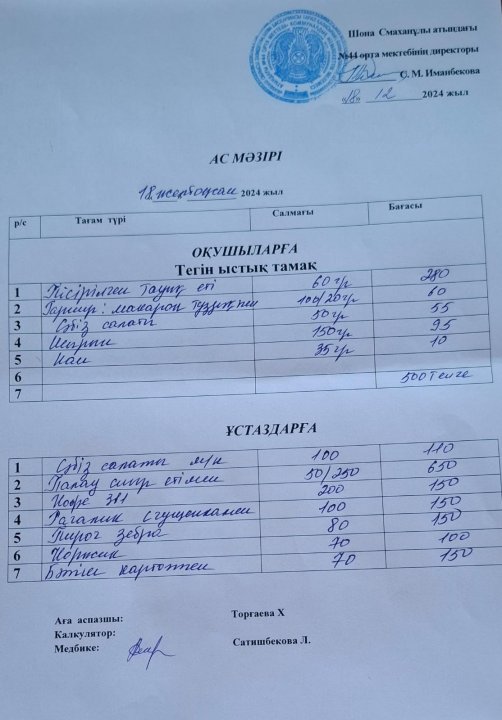 Шона Смаханұлы атындағы
№44 орта мектебінің директоры
С. М. Иманбекова
"18" 12 2024 жыл
АС МӘЗІРІ
18 желтоқсан 2024 жыл
р/с Тағам түрі Салмағы Бағасы
ОҚУШЫЛАРҒА
Тегін ыстық тамақ
1 Пісірілген тауық еті 60 гр 280
2 Гарнир: макарон тұздықпен 100/20гр 60
3 Сәбіз салаты 50 гр 55
4 150гр 95
5 Нан 35 гр 10
6 500 тенге
7
ҰСТАЗДАРҒА
1 Сәбіз салаты 100 110
2 Палау сиыр етімен 50/250 650
3 Кофе 3в1 200 150
4 Рагалик сгущенкамен 100 150
5 Пирог Зебра 80 150
6 Коржик 70 100
7 Бәтен картоппен 70 150
Аға аспазшы: Торғаева Х
Калкулятор:
Медбике: Сатишбекова Л.